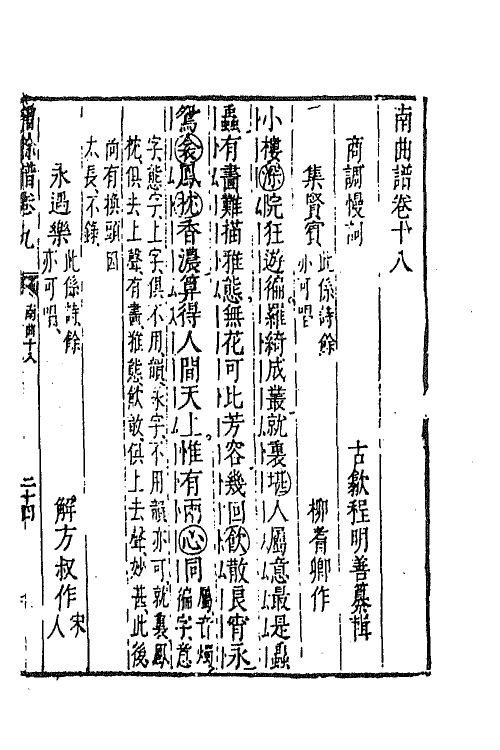 南曲譜卷十八
商調慢詞
古歙程明善纂輯
集賢賓 此係詩餘亦可唱
柳耆卿作
小樓深院狂遊徧羅綺成叢就裏堪人屬意最是蟲
蟲有畫難描雅態無花可比芳容幾回飲散良宵永
鴛衾鳳枕香濃算得人間天上惟有兩心同 屬音燭徧字意
字態字上字俱不用韻永字不用韻亦可就裏鳳
枕俱去上聲有畫雅態飲散俱上去聲妙甚此後
尚有換頭因
太長不錄
永遇樂 此係詩餘亦可唱
解方叔作 宋人
餘譜卷九
南曲十八
二十四